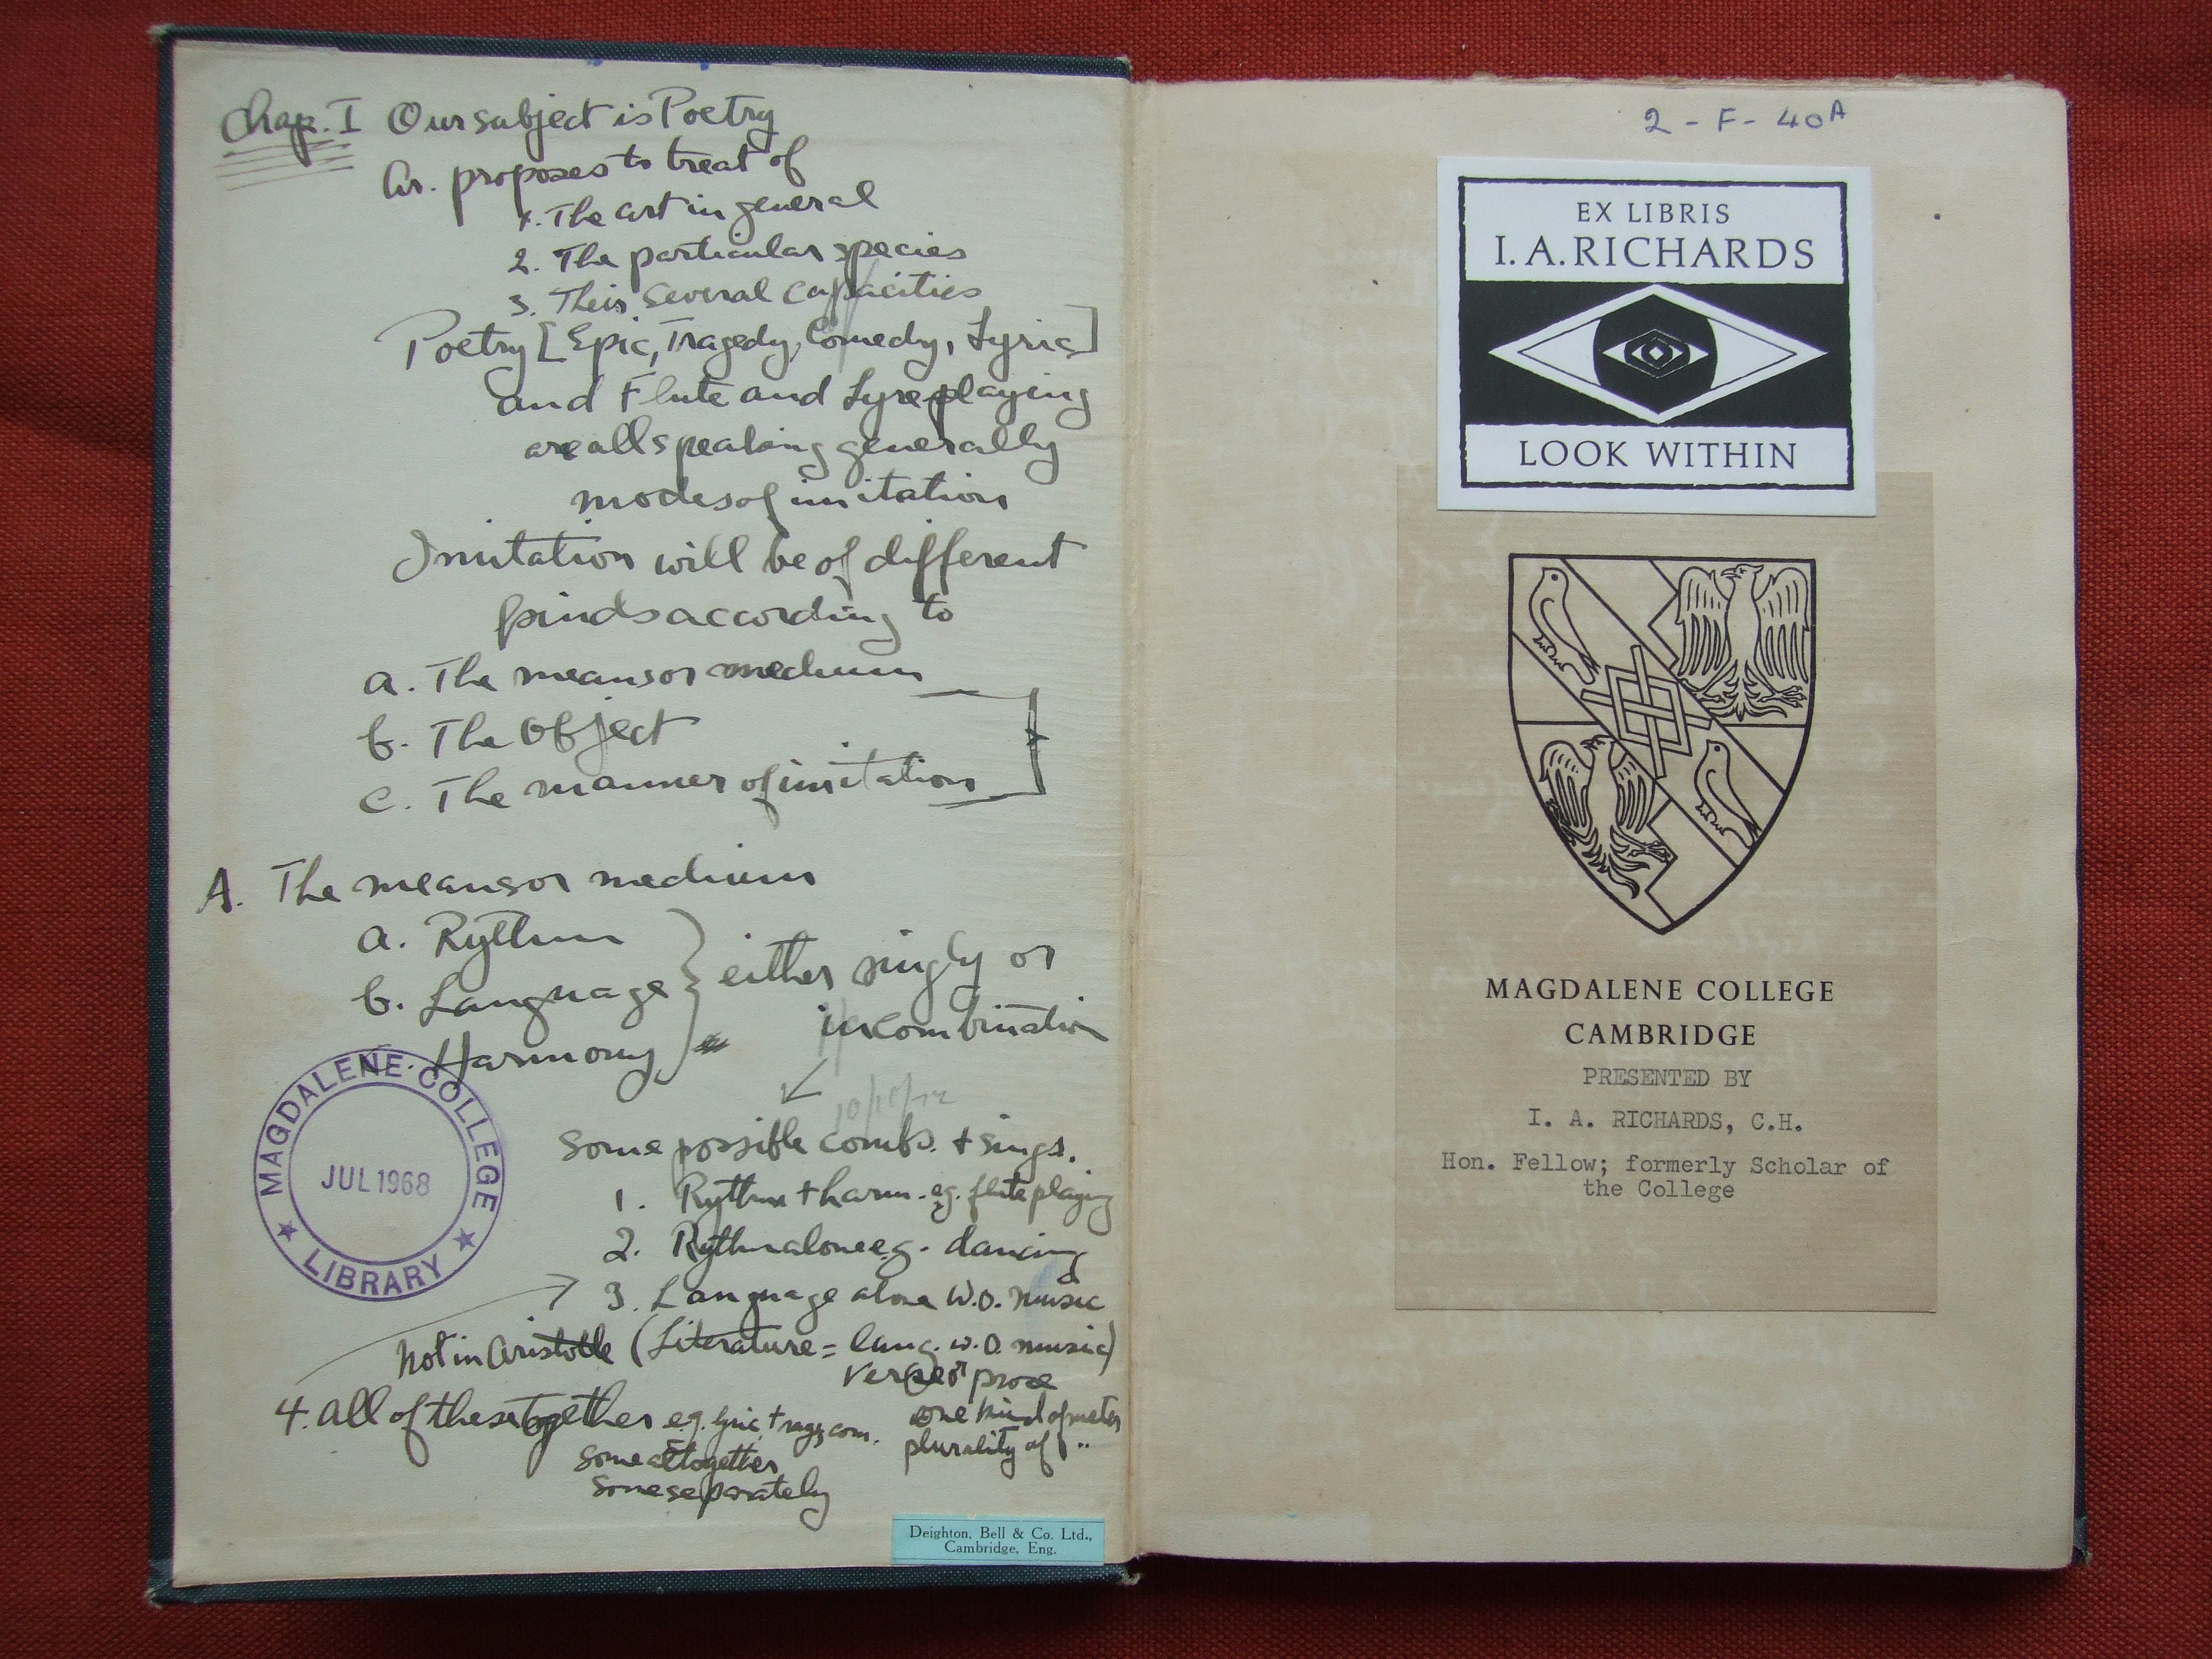 Chap. I Our subject is Poetry
Ar. proposes to treat of
1. The art in general
2. The particular species
3. Their several capacities
Poetry [Epic, Tragedy, Comedy, Lyric]
and Flute and Lyre playing
are all speaking generally
modes of imitation
Imitation will be of different
kinds according to
a. The means or medium
b. The Object
c. The manner of imitation
A. The means or medium
a. Rythm
b. Language
Harmony
either singly or
in combination
some possible combs. + sings.
1. Rythm + harm. eg. flute playing
2. Rythm alone e.g. dancing
3. Language alone w.o. music
Not in Aristotle (Literature = lang. w.o. music)
verse or prose
4. All of these together e.g. lyric, trag, com.
some altogether
some separately
one kind of meter
plurality of "
MAGDALENE COLLEGE
JUL 1968
LIBRARY
Deighton, Bell & Co. Ltd.,
Cambridge, Eng.
2 - F - 40A
EX LIBRIS
I. A. RICHARDS
LOOK WITHIN
MAGDALENE COLLEGE
CAMBRIDGE
PRESENTED BY
I. A. RICHARDS, C.H.
Hon. Fellow; formerly Scholar of
the College